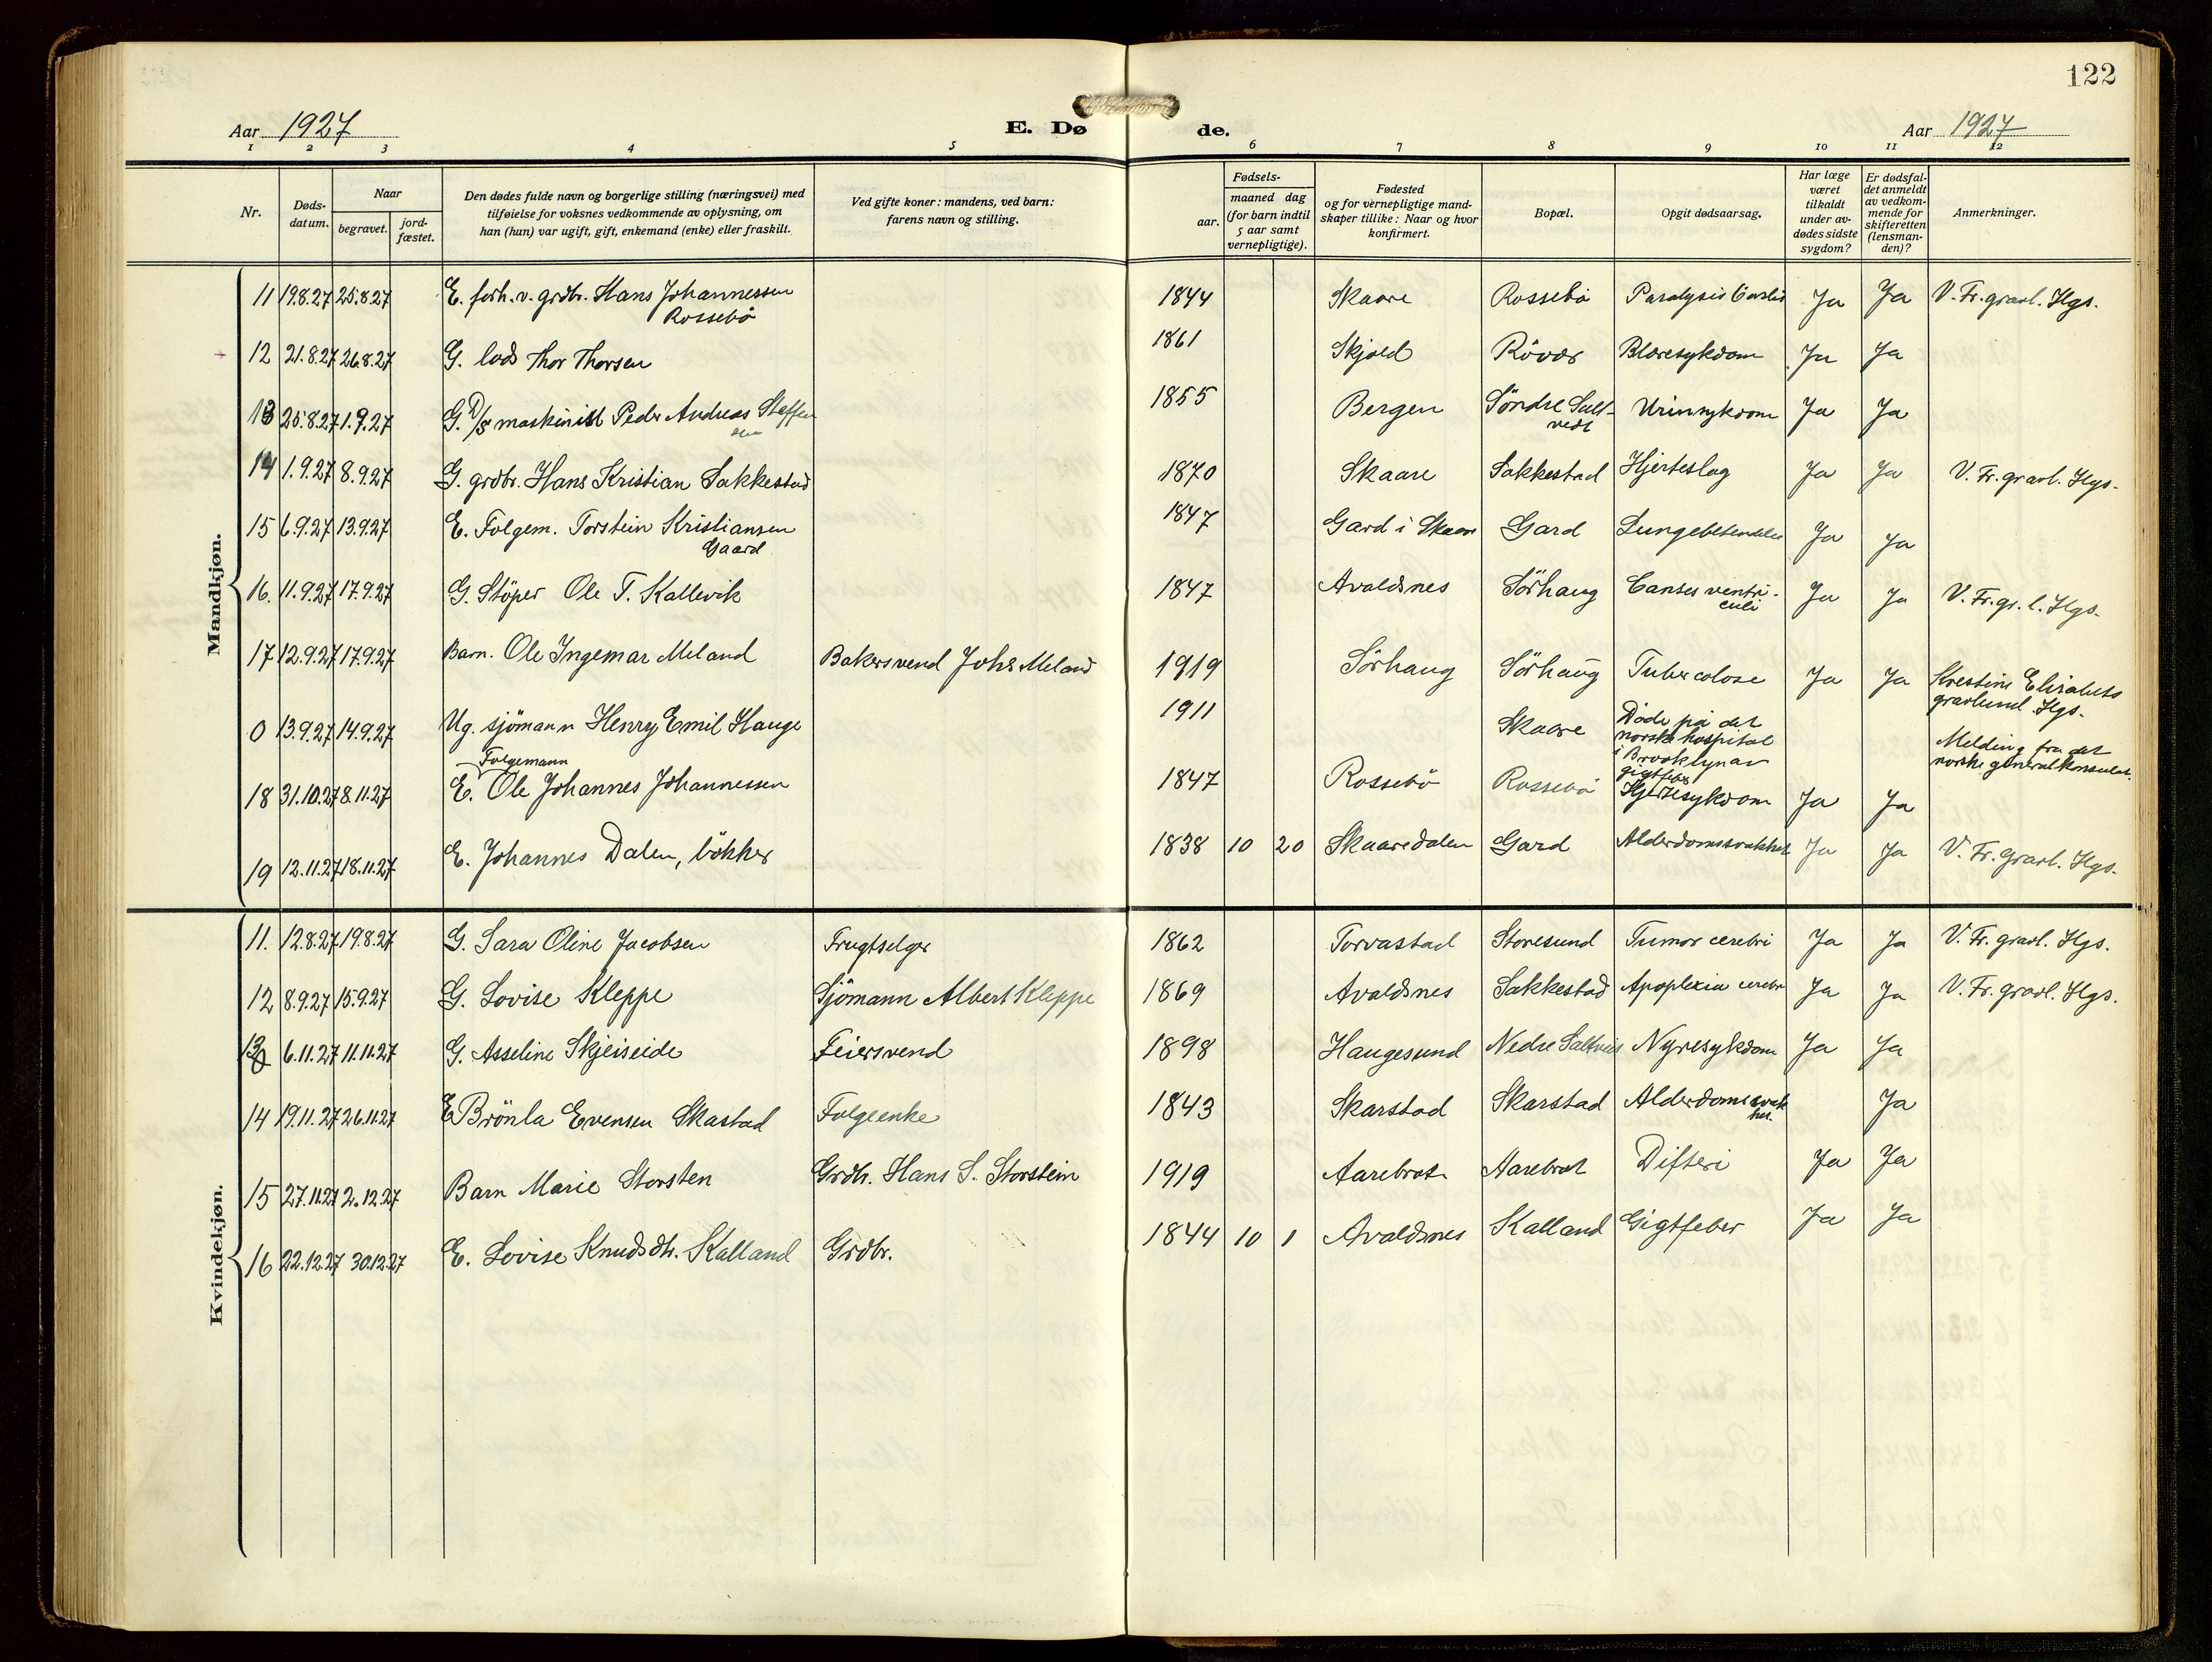 122
Aar 1927 E. Dø de. Aar 1927
1 2 3 4 5 6 7 8 9 10 11 12
Nr.
Døds-
datum.
Naar
begravet.
jord-
fæstet.
Den dødes fulde navn og borgerlige stilling (næringsvei) med
tilføielse for voksnes vedkommende av oplysning, om
han (hun) var ugift, gift, enkemand (enke) eller fraskilt.
Ved gifte koner: mandens, ved barn:
farens navn og stilling.
Fødsels-
aar.
maaned dag
(for barn indtil
5 aar samt
vernepligtige).
Fødested
og for vernepligtige mand-
skaper tillike: Naar og hvor
konfirmert.
Bopæl.
Opgit dødsaarsag.
Har læge
været
tilkaldt
under av-
dødes sidste
sygdom?
Er dødsfal-
det anmeldt
av vedkom-
mende for
skifteretten
(lensman-
den)?
Anmerkninger.
Mandkjøn.
11 19.8.27 25.8.27 E. forh. v. grdbr. Hans Johannessen 1844 Skaare Rossebö Paralysis Ja Ja V. Fr. gravl. Hgs.
Rossebö
12 21.8.27 26.8.27 G. lods Thor Thorsen 1861 Skjold Rövær Blæresykdom Ja Ja
13 25.8.27 1.9.27 G. D/S maskinist Peder Andreas Steffen 1855 Bergen Söndre Salt- Urinsykdom Ja Ja
sen vedt
14 1.9.27 8.9.27 G. grdbr. Hans Kristian Sakkestad 1870 Skaare Sakkestad Hjerteslag Ja Ja V. Fr. gravl. Hgs.
15 6.9.27 13.9.27 E. Folgem. Torstein Kristiansen 1847 Gard i Skaare Gard Lungebetendelse Ja Ja
Gaard
16. 11.9.27 17.9.27 G. Stöper Ole T. Kallevik 1847 Avaldsnes Sörhaug Canser ventri- Ja Ja V. Fr. gr. l. Hgs.
culi
17 12.9.27 17.9.27 Barn. Ole Ingemar Meland Bakersvend Johs Meland 1919 Sörhaug Sörhaug Tubercolose Ja Ja Krestine Elisabets
gravlund Hgs.
0 13.9.27 14.9.27 Ug. sjömann Henry Emil Hauge 1911 Skaare Döde på det
norske hospital
i Brooklyn av
gigtfeber
Melding fra det
norske generalkonsulat.
Folgemann
18 31.10.27 8.11.27 E. Ole Johannes Johannessen 1847 Rossebö Rossebö Hjertesykdom Ja Ja
19 12.11.27 18.11.27 E. Johannes Dalen, bökker 1838 10 20 Skaaredalen Gard Alderdomssvakhet Ja Ja V. Fr. gravl. Hgs.
Kvindekjøn.
11. 12.8.27 19.8.27 G. Sara Oline Jacobsen Frugtselger 1862 Torvastad Storesund Tumor cerebri Ja Ja V. Fr. gravl. Hgs.
12 8.9.27 15.9.27 G. Lovise Kleppe Sjömann Albert Kleppe 1869 Avaldsnes Sakkestad Apoplexia cerebri Ja Ja V. Fr. gravl. Hgs.
13 6.11.27 11.11.27 G. Asseline Skjeiseide Feiersvend 1898 Haugesund Nedre Saltveit Nyresykdom Ja Ja
14 19.11.27 26.11.27 E Brönla Evensen Skastad Folgeenke 1843 Skarstad Skarstad Alderdomssvak Ja
het.
15 27.11.27 2.12.27 Barn Marie Storsten Grdbr. Hans S. Storstein 1919 Aarebrot Aarebrot Difteri Ja Ja
16 22.12.27 30.12.27 E. Lovise Knudsdtr. Kalland Grdbr. 1844 10 1 Avaldsnes Kalland Gigtfeber Ja Ja